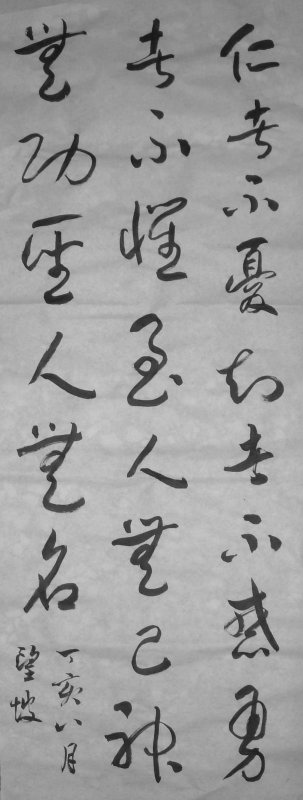 仁者不憂知者不惑勇
者不懼至人無己神
無功聖人無名
丁亥八月
望坡